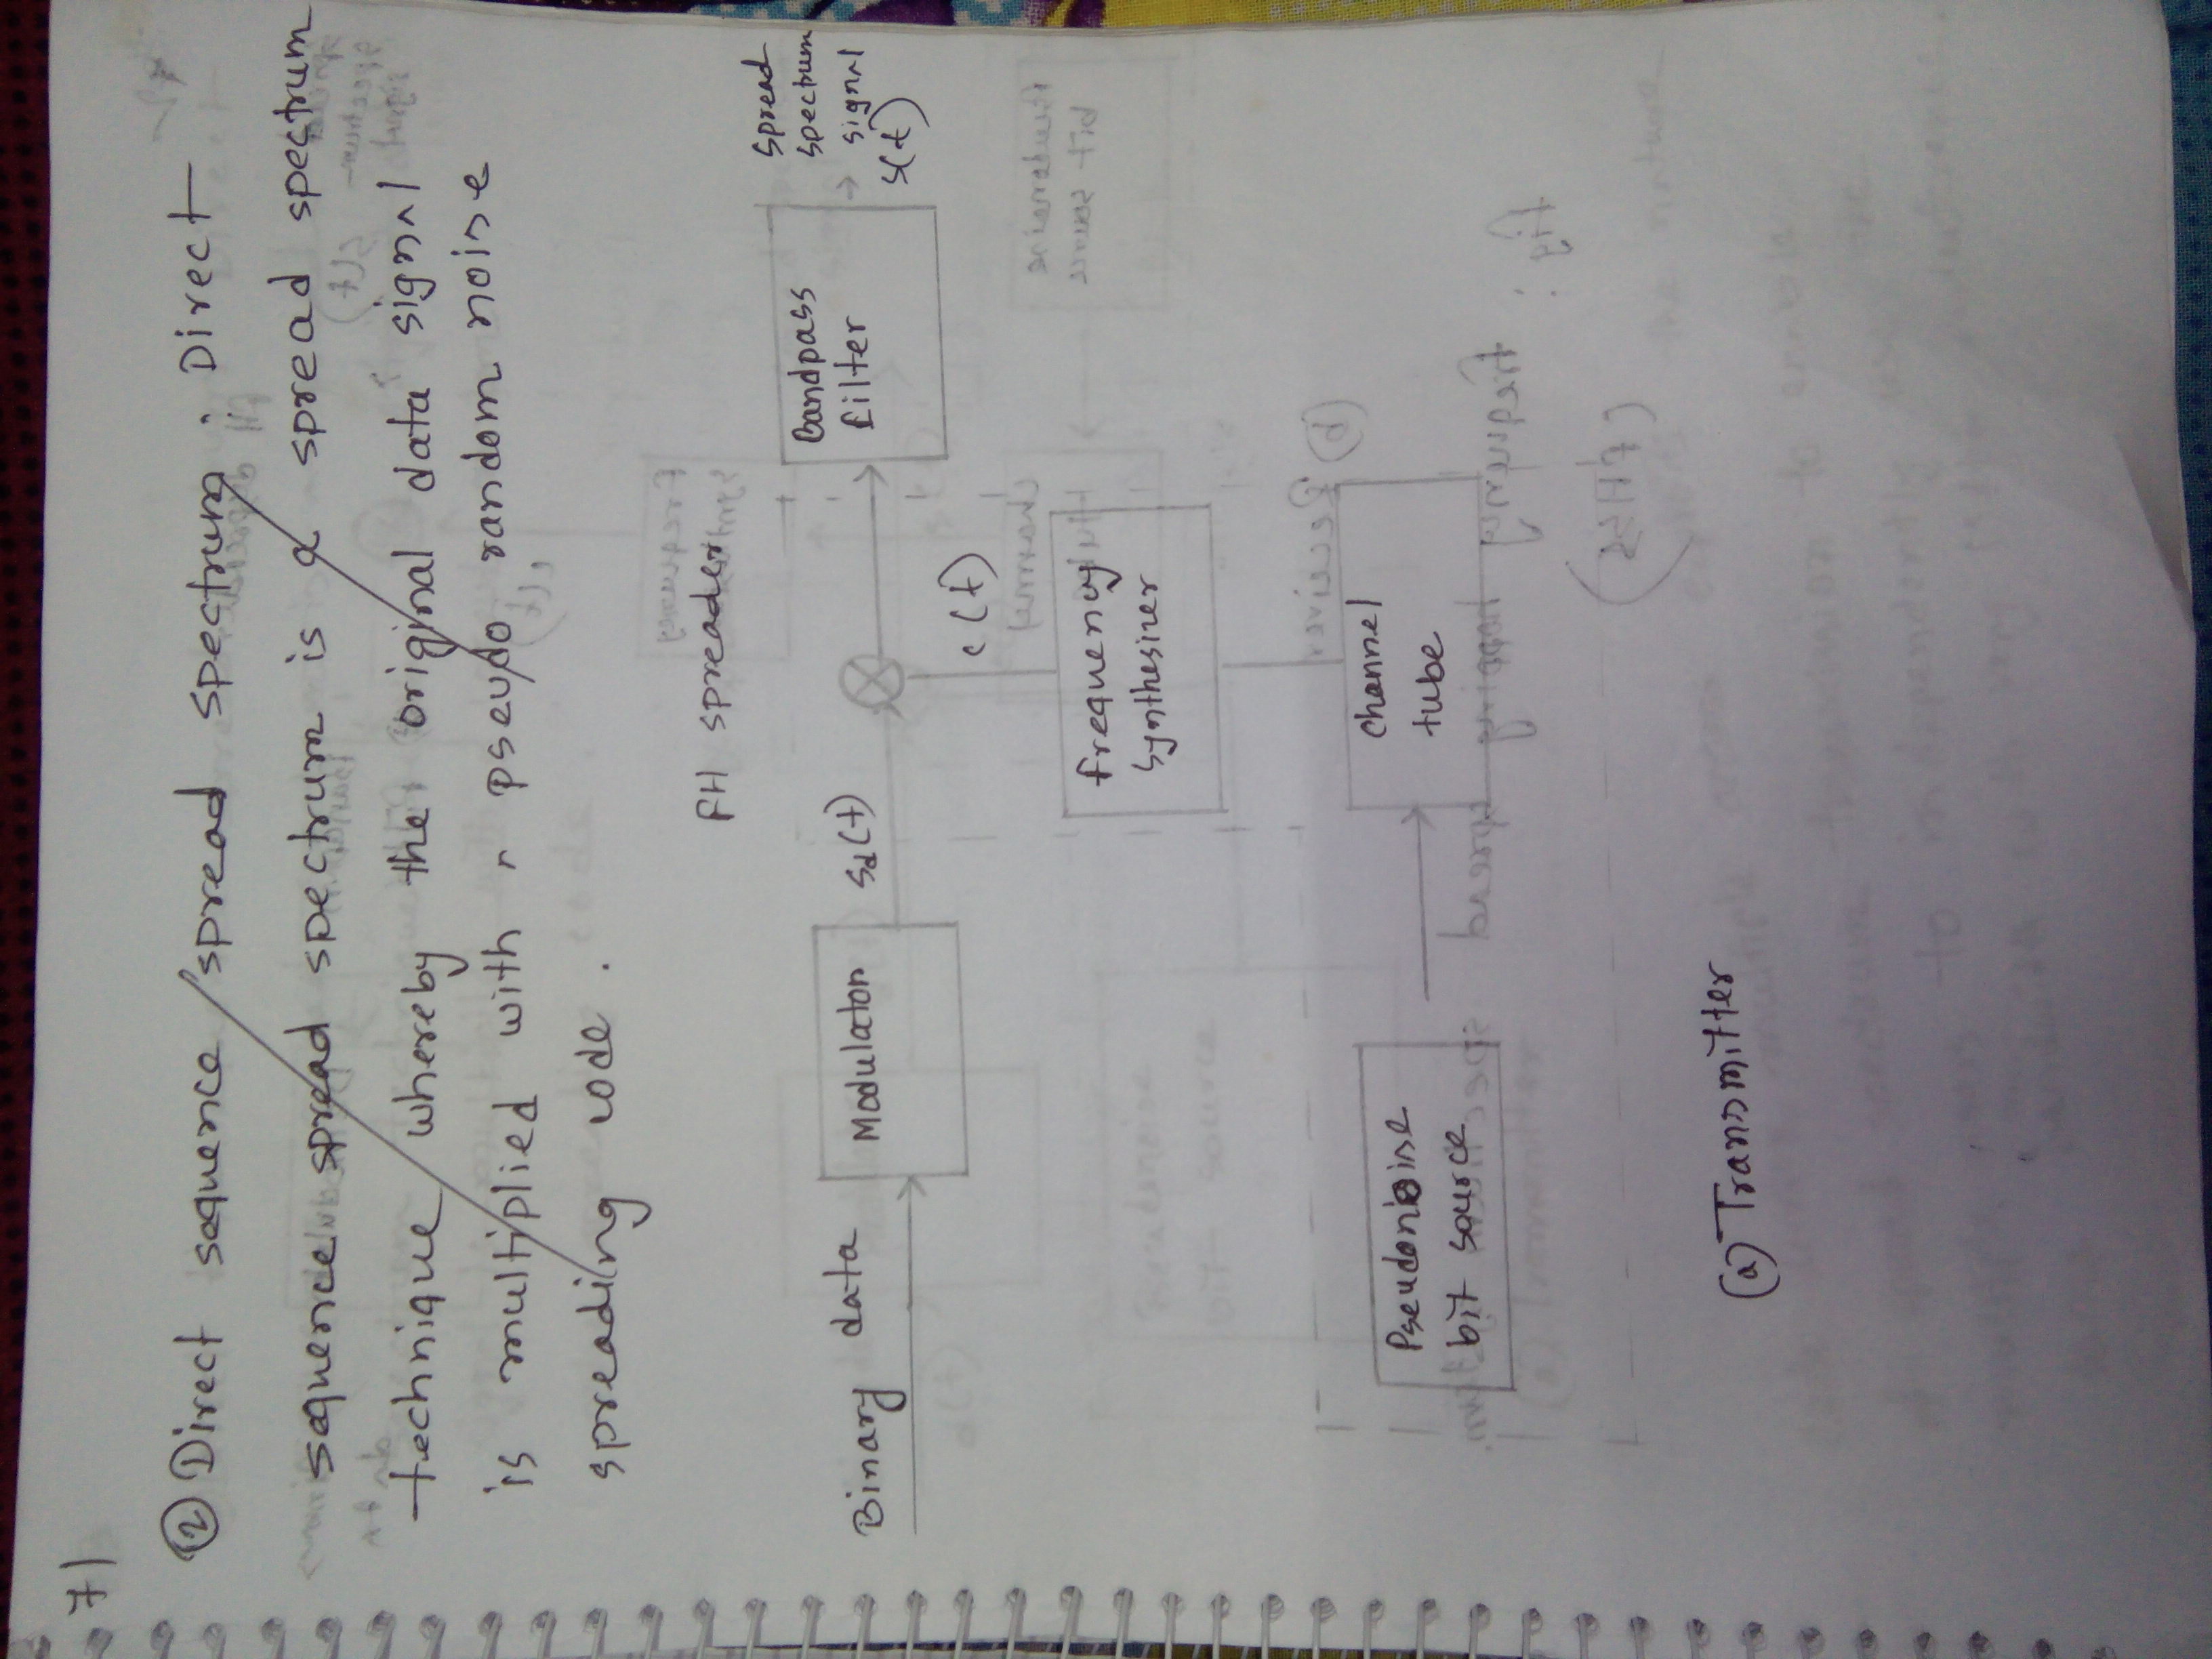 71
② Direct sequence spread spectrum: Direct
sequence spread spectrum is a spread spectrum
technique whereby the original data signal
is multiplied with a pseudo random noise
spreading code.
FH spreader
Binary data
Modulator
Sd(t)
Bandpass
filter
spread
spectrum
signal
s(t)
c(t)
frequency
synthesizer
channel
tube
Pseudonoise
bit source
(a) Transmitter